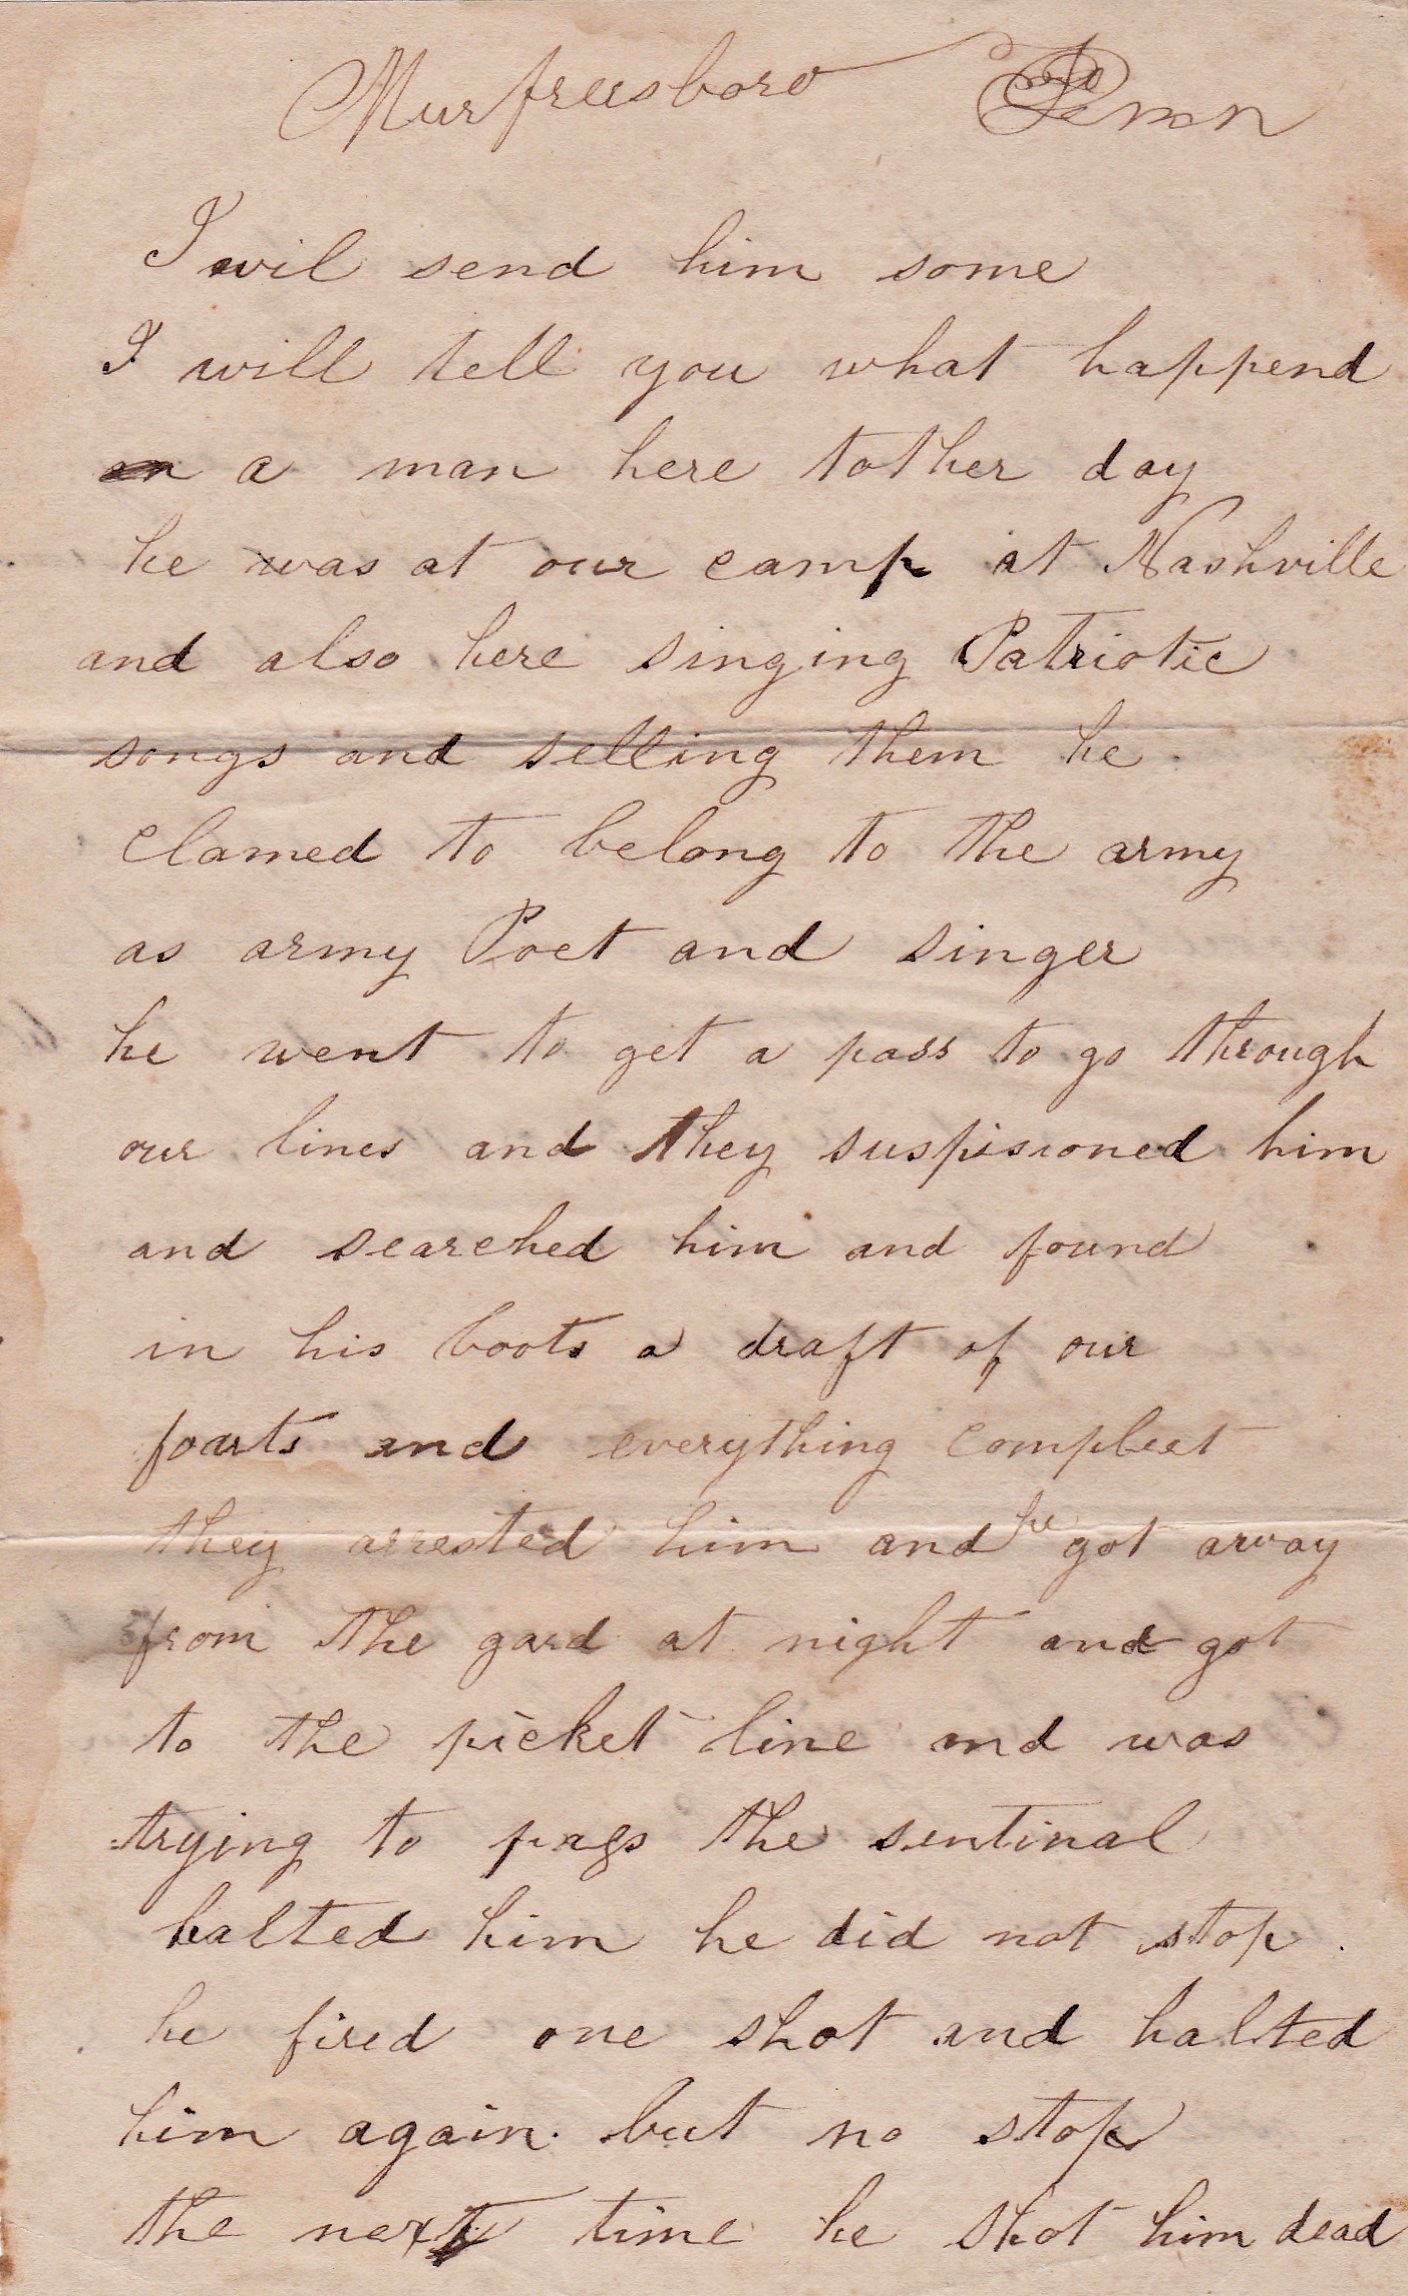 Murfreesboro Tenn
I wil send him some
I will tell you what happend
a man here tother day
he was at our camp at Nashville
and also here singing Patriotic
songs and selling them he
clamed to belong to the army
as army Poet and singer
he went to get a pass to go through
our lines and they suspisioned him
and searched him and found
in his boots a draft of our
fourts and everything compleet
they arrested him and he got away
from the gard at night and got
to the picket line and was
trying to pass the sentinal
halted him he did not stop.
he fired one shot and halted
him again. but no stop
the next time he shot him dead